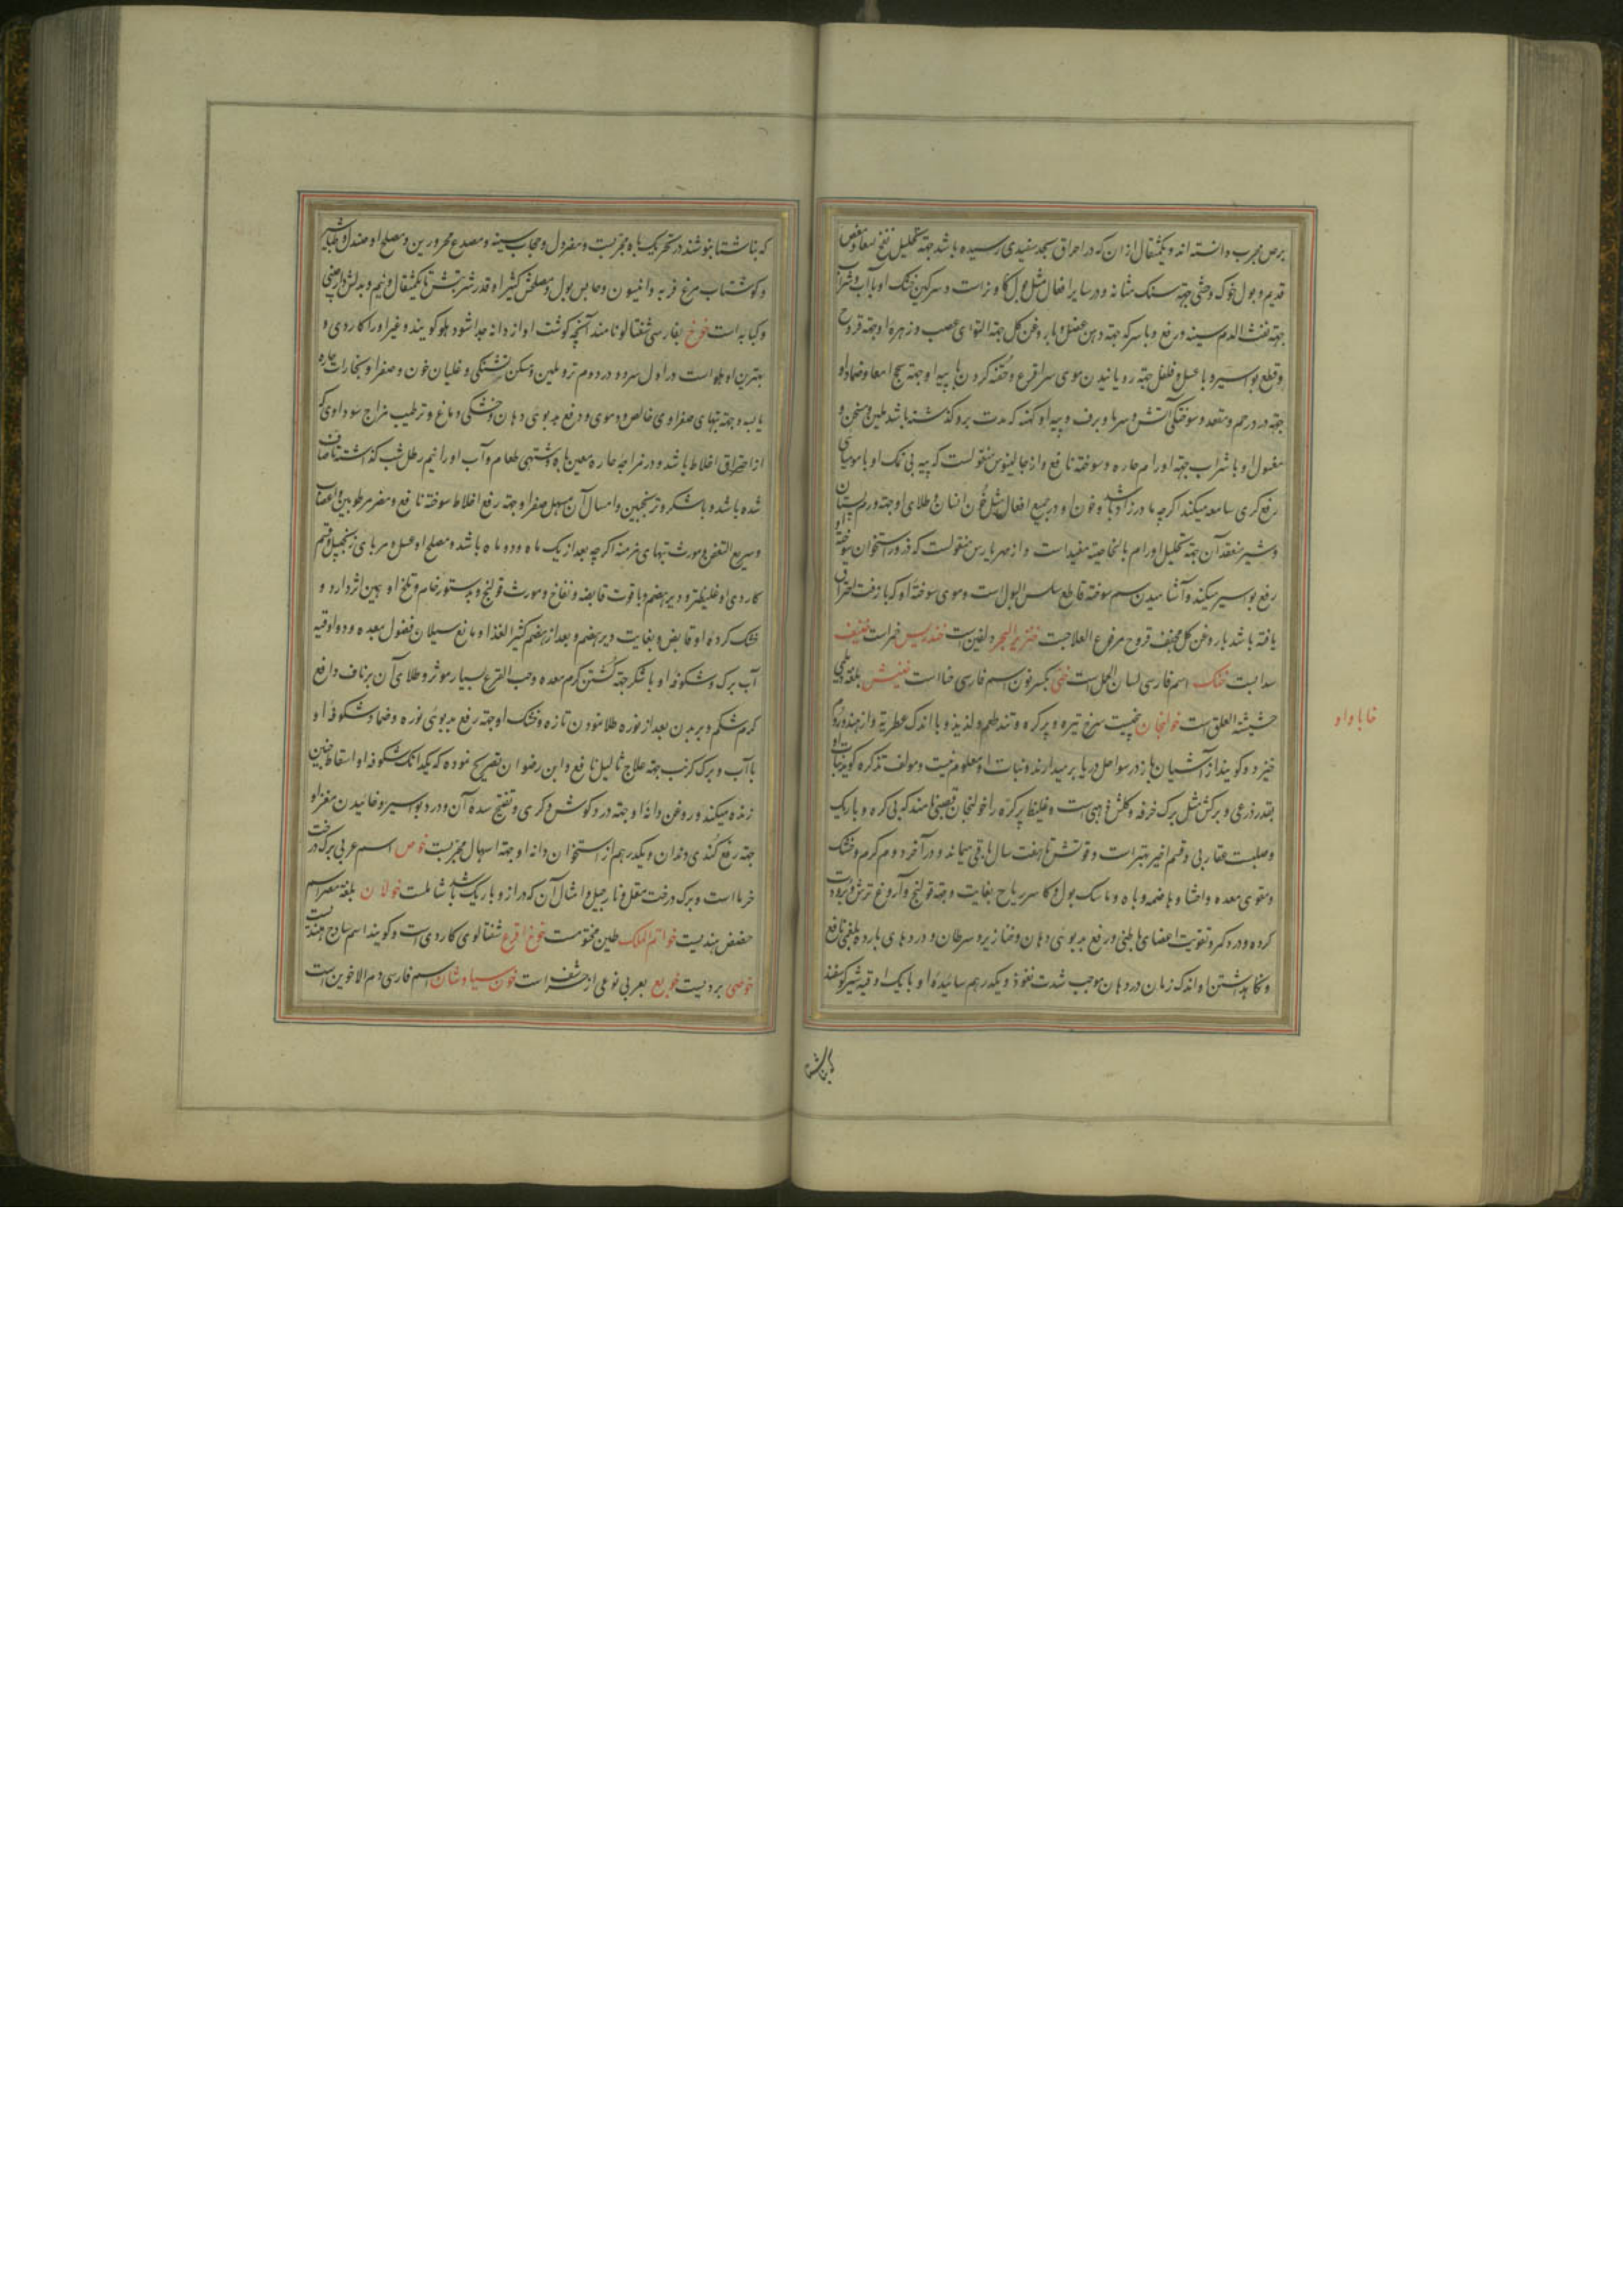 برص مجرب دانسته اند و یکمثقال ازان که در احراق بحد سفیدی رسیده باشد جهة تحلیل نفخ معا و مغص
قدیم و بول خوک وحشی جهة سنک مثانه و در سایر افعال مثل بول کاو نر است و سرکین خشک او با آب و شراب
جهة نفث الدم سینه و رفع و با سرکه جهة وهن عضل و با روغن کل جهة التوای عصب و زهره او جهة قروح
و قطع بواسیر و با عسل و فلفل جهة رویانیدن موی سر اقرع و حقنه کردن با پیه او جهة سحج امعا و ضماد او
جهة درد رحم و مقعد و سوختکی آتش و سرما و برف و پیه او کهنه که مدت برو کذشته باشد ملین و مسخن و
مغسول او با شراب جهة اورام حاره و سوخته نافع و از جالینوس منقولست که پیه بی نمک او با مومیائی
رفع کری سامعه میکند اکرچه مادرزاد باشد و خون او در جمیع افعال مثل خون انسان و طلای او جهة ورم پستان
و شیر منعقد آن جهة تحلیل اورام بالخاصیة مفید است و از مهریارس منقولست که ذرور استخوان سوخته او
رفع بواسیر میکند و آشامیدن سم سوخته قاطع سلس البول است و موی سوخته او که با زفت احراق
یافته باشد با روغن کل مجفف قروح مرفوع العلاجست خنزیر البحر دلفین است خندریس خمر است خنیف
سدابست خنک اسم فارسی لسان الحمل است خنی بکسر نون اسم فارسی حنا است خنیش بلغة دیلمی
حشیشة العلق است خولنجان بیخیست سرخ تیره و پر کره و تند طعم و لذیذ و با اندک عطریة و از هند و روم
خیزد و کویند از آشیان باز در سواحل دریا بر میدارند و نبات او معلوم نیست و مولف تذکره کوید نبات او
بقدر ذرعی و برکش مثل برک خرفه و کلش ذهبی است و غلیظ پر کره را خولنجان قصبی نامند که بی کره و باریک
و صلبست عقاربی و قسم اخیر بهتر است و قوتش تا هفت سال باقی میماند و در آخر دوم کرم و خشک
و مقوی معده و احشا و هاضمه و باه و ماسک بول و کاسر ریاح بغایت و جهة قولنج و آروغ ترش و برودت
کرده و درد کمر و تقویت اعضای باطنی و رفع بدبوئی دهان و خنازیر و سرطان و دردهای بارده بلغمی نافع
و نکاه داشتن او اندک زمان در دهان موجب شدت نفوذ و یکدرهم سائیده او با یک اوقیه شیر کوسفند
خا با واو
که ناشتا بنوشند در تحریک باه مجربست و مضر دل و حجاب سینه و مصدع محرورین و مصلح او صندل و طباشیر
و کوشتاب مرغ فربه و انیسون و حابس بول و مصلحش کثیرا و قدر شربتش تا یکمثقال و نیم و بدلش دارچینی
و کبابه است خوخ بفارسی شفتالو نامند آنچه کوشت او از دانه جدا شود هلو کویند و غیر او را کاردی و
بهترین او هلو است در اول سرد و در دوم تر و ملین و مسکن تشنکی و غلیان خون و صفرا و بخارات حاره
یابسه و جهة تبهای صفراوی خالص و دموی و رفع بدبوئی دهان و خشکی دماغ و ترطیب مزاج سوداوی که
از احتراق اخلاط باشد و در مزاجه حاره معین باه و مشتهی طعام و آب او را نیم رطل شب کذاشته تا صاف
شده باشد و با شکر و ترنجبین و امثال آن مسهل صفرا و جهة رفع اخلاط سوخته نافع و مضر مرطوبین و اعصاب
و سریع التعفن و مورث تبهای مزمنه اکرچه بعد از یک ماه و دو ماه باشد و مصلح او عسل و مربای زنجبیل و قسم
کاردی او غلیظتر و دیر هضم و با قوت قابضه و نفاخ و مورث قولنج و بدستور خام و تلخ او همین اثر دارد و
خشک کرده او قابض و بغایت دیر هضم و بعد از هضم کثیر الغذا و مانع سیلان فضول بمعده و دو اوقیه
آب برک و شکوفه او با شکر جهة کشتن کرم معده و حب القرع بسیار موثر و طلای آن بر ناف دافع
کرم شکم و بر بدن بعد از نوره طلا نمودن تازه و خشک او جهة رفع بدبوئی نوره و ضماد شکوفه او
با آب و برک کرنب جهة علاج ثالیل نافع و ابن رضوان تصریح نموده که یکدانک شکوفه او اسقاط جنین
زنده میکند و روغن دانه او جهة درد کوش و کری و تفتیح سده آن و درد بواسیر و خائیدن مغز او
جهة رفع کندی دندان و یکدرهم از استخوان دانه او جهة اسهال مجربست خوص اسم عربی برک درخت
خرما است و برک درخت مقل و نارجیل و امثال آن که دراز و باریک باشد شاملست خولان بلغة مصر اسم
حضض هندیست خواتم الملک طین مختومست خوخ اقرع شفتالوی کاردی است و کویند اسم ساذج هندیست
خوصی بردیست خوبع بعربی نوعی از حرشف است خون سیاوشان اسم فارسی دم الاخوین است